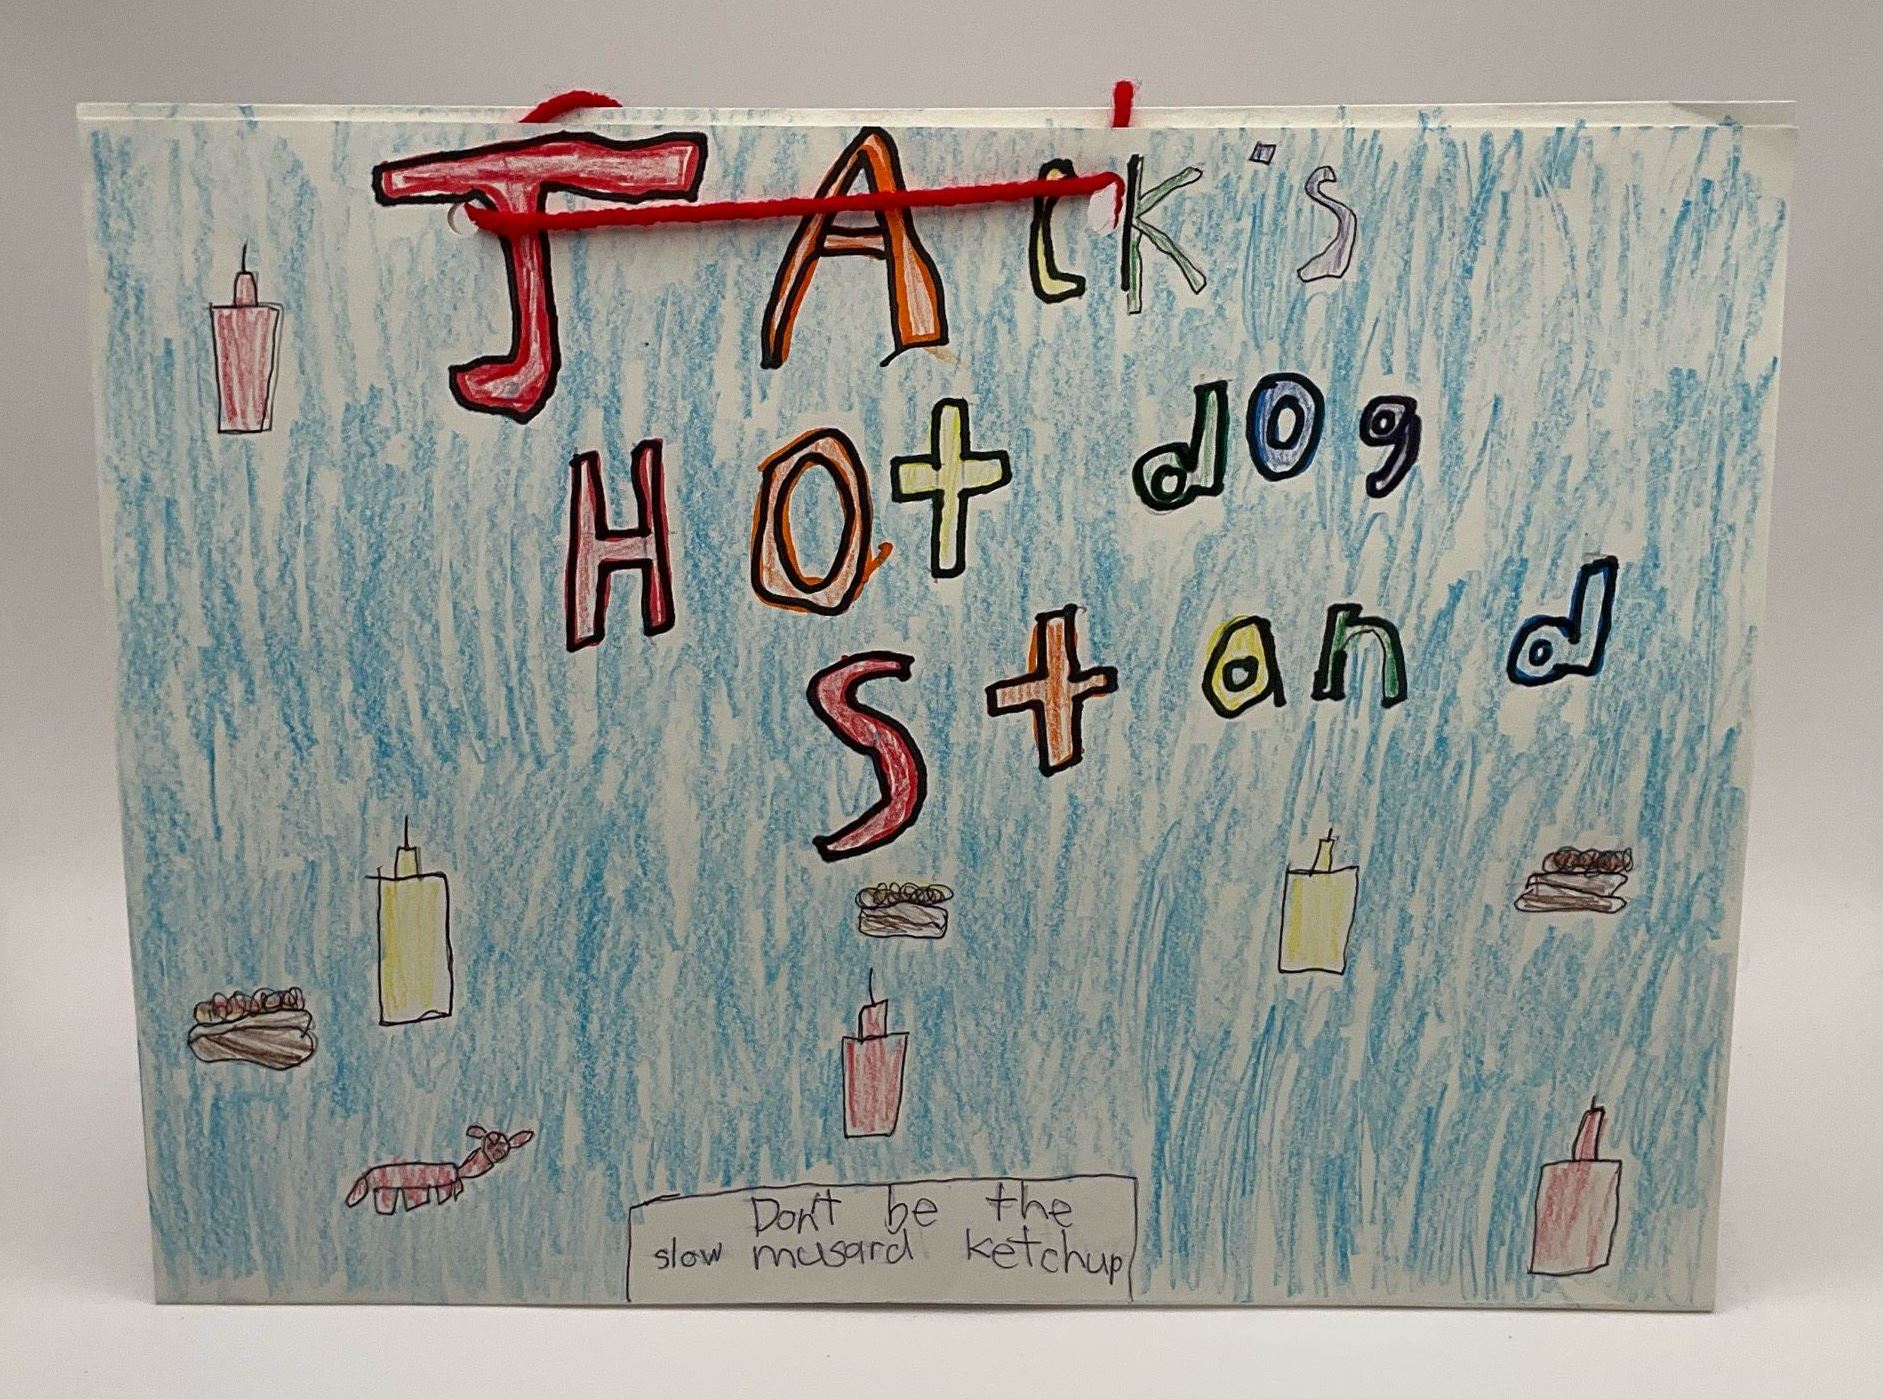 JAck's
HOt dog
Stand
Don't be the
slow musard ketchup